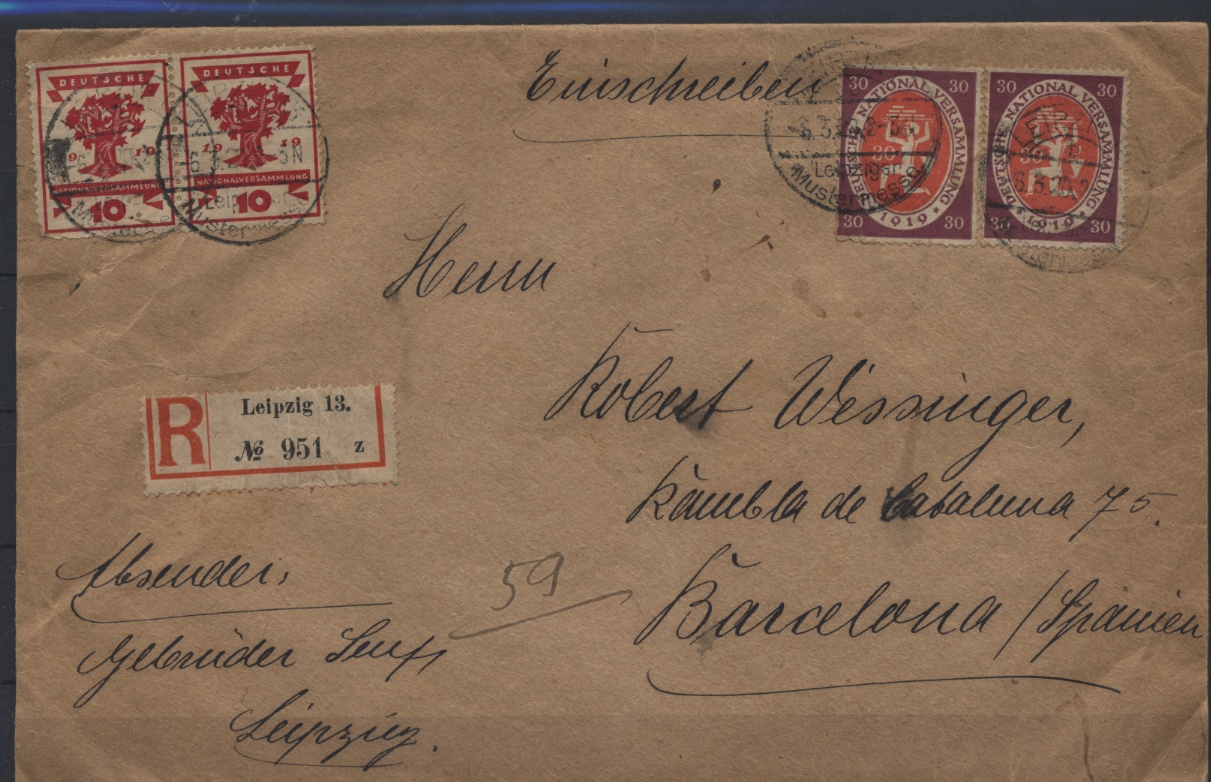 Einschreiben
DEUTSCHE
1919
NATIONALVERSAMMLUNG
10
DEUTSCHE
1919
NATIONALVERSAMMLUNG
10
30 30
DEUTSCHE NATIONALVERSAMMLUNG
30
* 1919 *
30 30
30 30
DEUTSCHE NATIONALVERSAMMLUNG
30
* 1919 *
30 30
Leipziger
Mustermesse
Herrn
Robert Wessinger,
Rambla de Cataluna 75.
Barcelona / Spanien
R Leipzig 13.
№ 951 z
59
Absender:
Gebrüder
Leipzig.